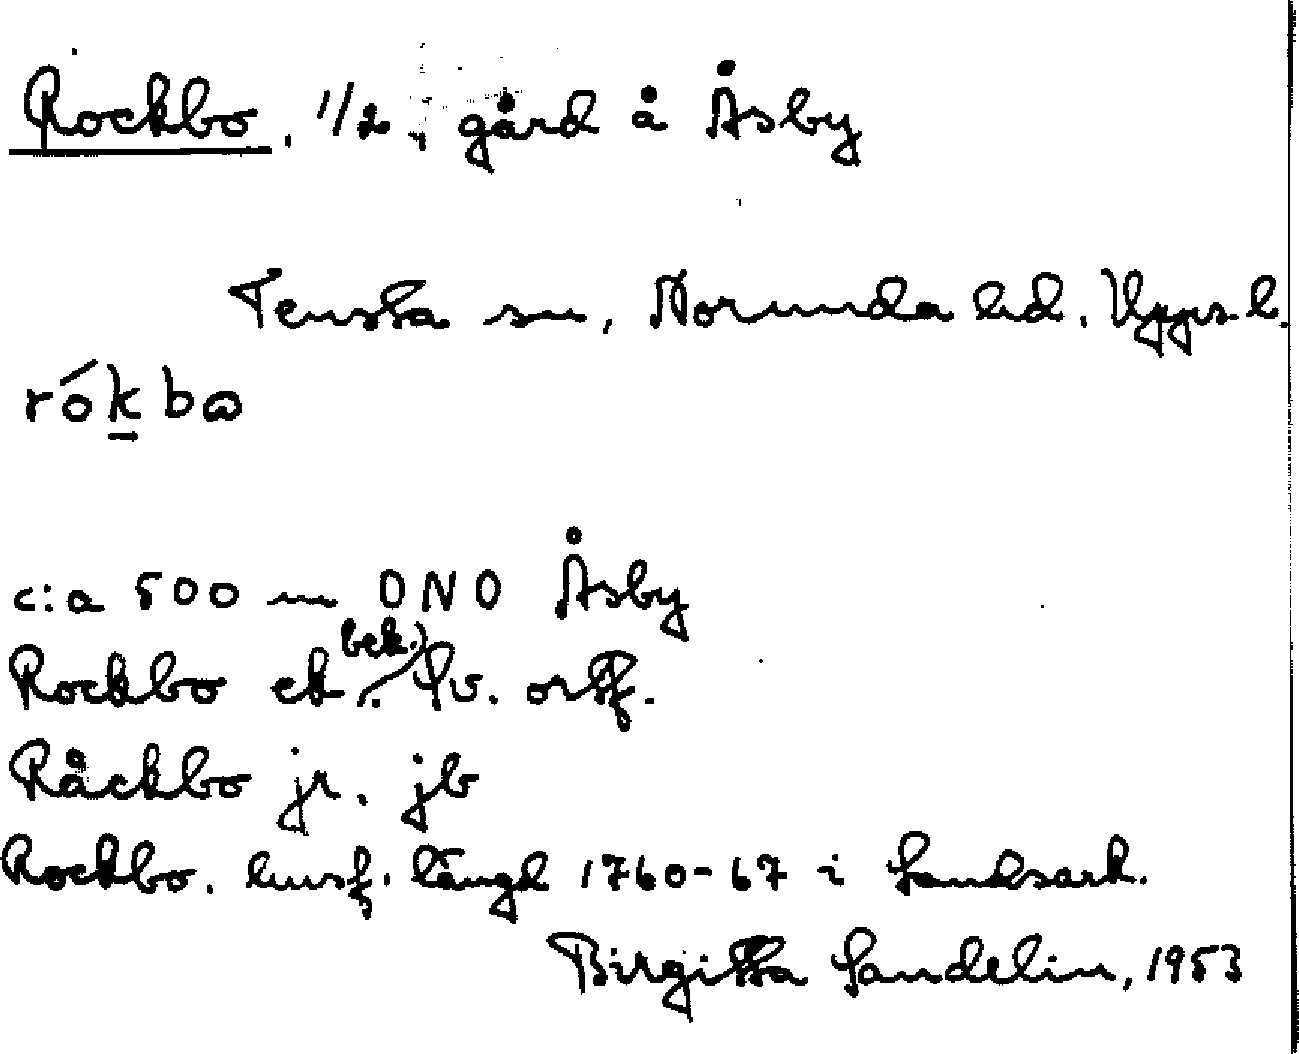 Rockbo, 1/2 gård å Åsby
Tensta sn, Norunda hd. Upps. l.
rókbo
c:a 500 m ONO Åsby
Rockbo ek. bek. Sv. ortf.
Råckbo jr. jb
Rockbo. husf. längd 1760-67 i Landsark.
Birgitta Sandelin, 1953